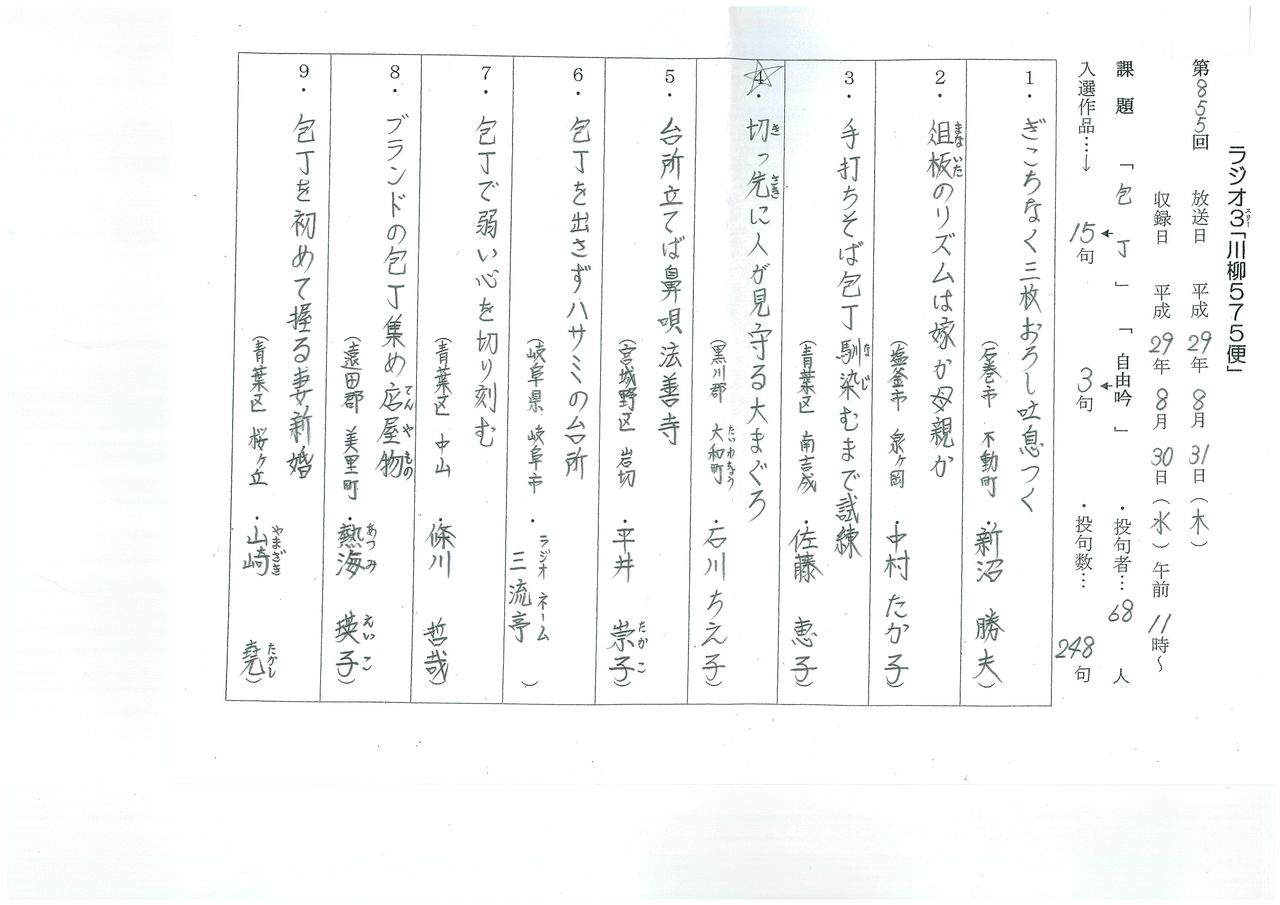 ラジオ3「川柳575便」
スリー
第855回 放送日 平成29年8月31日(木)
収録日 平成29年8月30日(水)午前11時~
課題 「包丁」 「自由吟」 ・投句者…68人
入選作品…→ 15句 3句 ・投句数…248句
1・ぎこちなく三枚おろし吐息つく
(石巻市 不動町・新沼 勝夫)
2・俎板のリズムは嫁か母親か
まないた
(塩釜市 泉ヶ岡・中村 たか子)
3・手打ちそば包丁馴染むまで試練
なじ
(青葉区 南吉成・佐藤 恵子)
4・切っ先に人が見守る大まぐろ
き さき
(黒川郡 大和町・石川 ちえ子)
たいわちょう
5・台所立てば鼻唄法善寺
(宮城野区 岩切・平井 崇子)
たかこ
6・包丁を出さずハサミの台所
(岐阜県 岐阜市・ラジオネーム 三流亭)
7・包丁で弱い心を切り刻む
(青葉区 中山・條川 哲哉)
8・ブランドの包丁集め店屋物
てんやもの
(遠田郡 美里町・熱海 瑛子)
あつみ えいこ
9・包丁を初めて握る妻新婚
(青葉区 桜ヶ丘・山崎 堯)
やまざき たかし